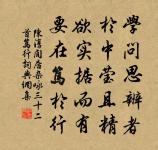 學問思辯者
於中瑩且精
欲實据而有
要在篤於行
陳淳閒居雜咏三十二
首篤行詞典網集